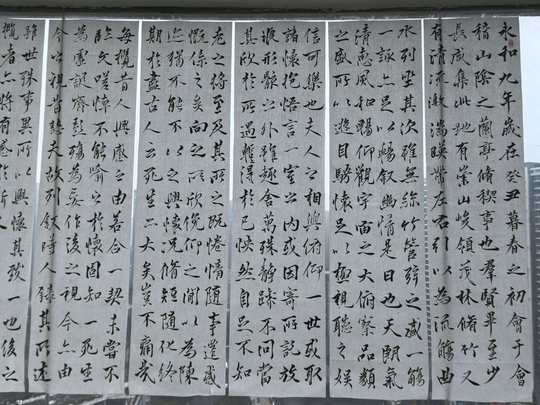 永和九年歲在癸丑暮春之初會于會
稽山陰之蘭亭脩稧事也羣賢畢至少
長咸集此地有崇山峻領茂林脩竹又
有清流激湍暎帶左右引以為流觴曲
水列坐其次雖無絲竹管弦之盛一觴
一詠亦足以暢叙幽情是日也天朗氣
清惠風和暢仰觀宇宙之大俯察品類
之盛所以遊目騁懷足以極視聽之娛
信可樂也夫人之相與俯仰一世或取
諸懷抱悟言一室之內或因寄所託放
浪形骸之外雖趣舍萬殊靜躁不同當
其欣於所遇暫得於己怏然自足不知
老之將至及其所之既惓情隨事遷感
慨係之矣向之所欣俛仰之間以為陳
迹猶不能不以之興懷況脩短隨化終
期於盡古人云死生亦大矣豈不痛哉
每攬昔人興感之由若合一契未嘗不
臨文嗟悼不能喻之於懷固知一死生
為虛誕齊彭殤為妄作後之視今亦由
今之視昔悲夫故列叙時人錄其所述
雖世殊事異所以興懷其致一也後之
攬者亦將有感於斯